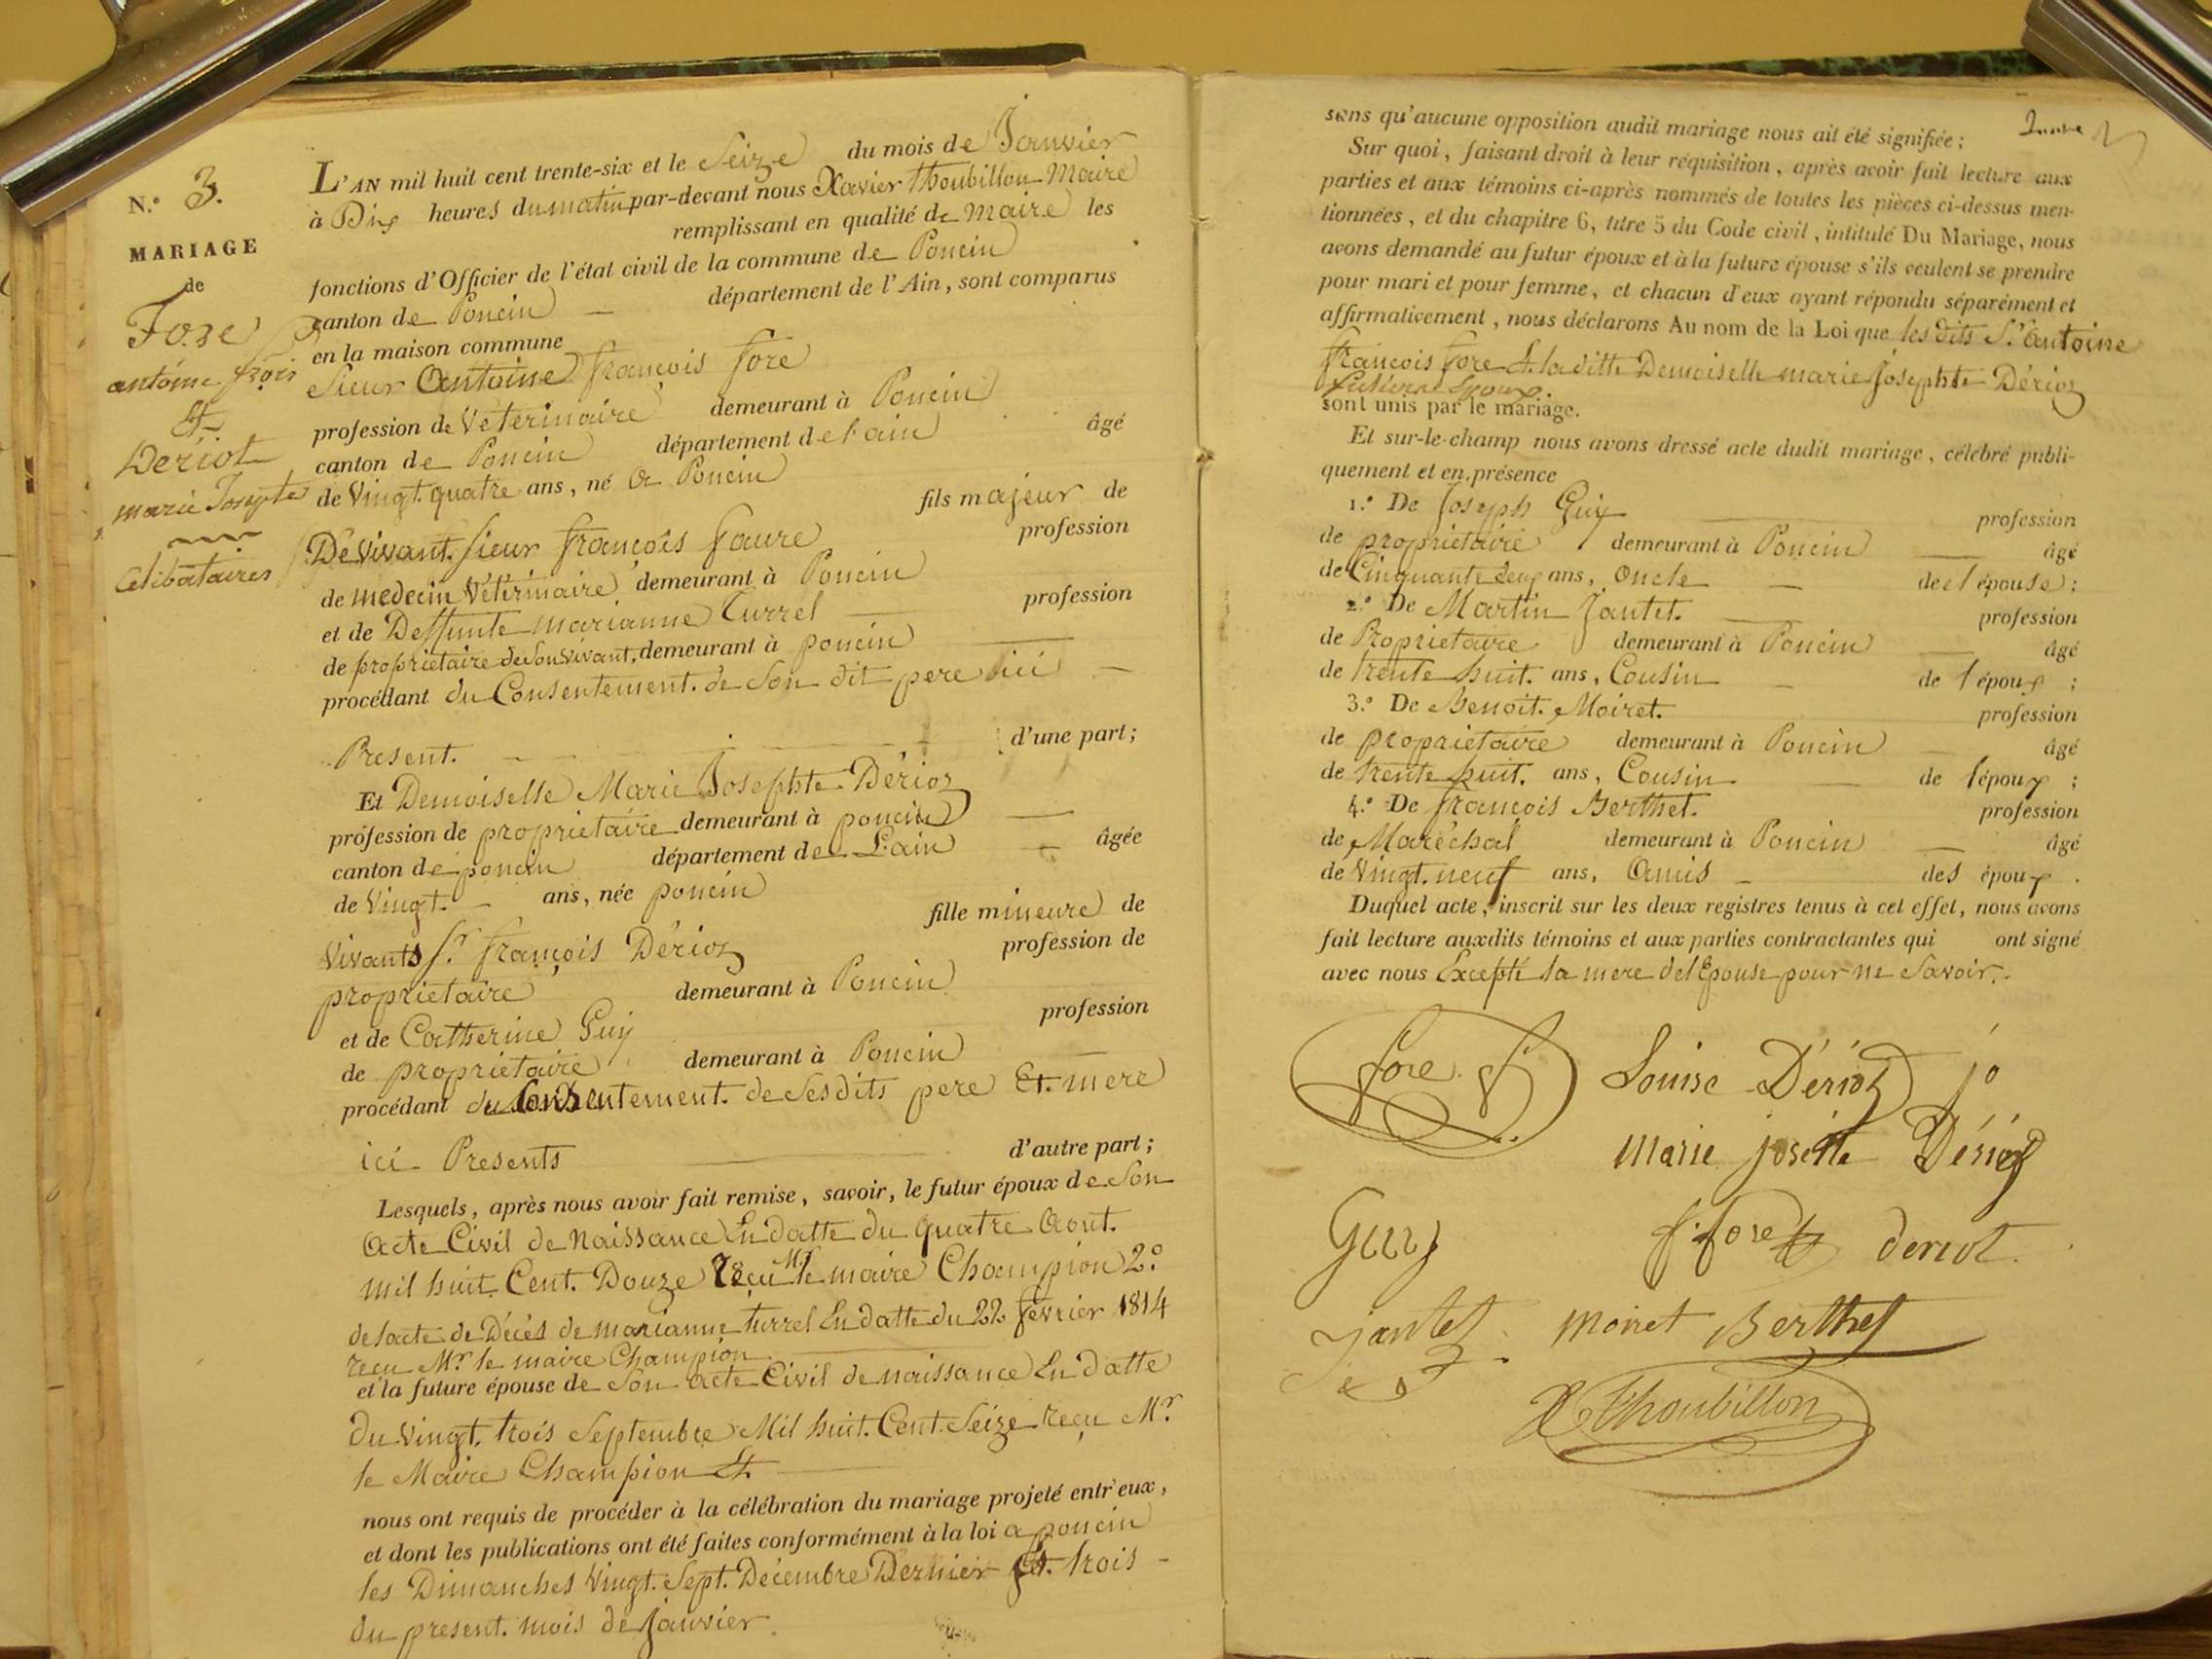 N.º 3.
MARIAGE
de
Fore
antoine fçois
Et
Deriot
marie Josepte
Celibataires
L'AN mil huit cent trente-six et le Seize du mois de Janvier
à Dix heures du matin par-devant nous Xavier Thoubillon Maire
remplissant en qualité de maire les
fonctions d'Officier de l'état civil de la commune de Poncin
canton de Poncin département de l'Ain, sont comparus
en la maison commune
Sieur Antoine françois fore
profession de Veterinaire demeurant à Poncin
canton de Poncin département de l'ain âgé
de Vingt. quatre ans, né a Poncin
fils majeur de
De Vivant. Sieur françois faure profession
de medecin Veterinaire demeurant à Poncin
et de Deffunte marianne Turrel profession
de proprietaire de Son vivant, demeurant à poncin
procédant du Consentement. de Son dit pere ici
Present. d'une part;
Et Demoiselle Marie Josephte Dérioz
profession de proprietaire demeurant à poncin
canton de poncin département de L'ain âgée
de Vingt. ans, née poncin
fille mineure de
Vivants S.r françois Dérioz profession de
proprietaire demeurant à Poncin
et de Catherine Guy profession
de proprietaire demeurant à Poncin
procédant du Consentement. de Ses dits pere Et. mere
ici Presents d'autre part;
Lesquels, après nous avoir fait remise, savoir, le futur époux de Son
Acte Civil de Naissance En datte du quatre Aout.
mil huit Cent. Douze reçu Mr le maire Champion 2.º
de l'acte de Décès de marianne turrel En datte du 22 février 1814
reçu Mr le maire Champion
et la future épouse de Son acte Civil de naissance En datte
du Vingt. trois Septembre Mil huit. Cent. Seize reçu Mr.
le Maire Champion Et.
nous ont requis de procéder à la célébration du mariage projeté entr'eux,
et dont les publications ont été faites conformément à la loi a poncin
les Dimanches Vingt. Sept. Décembre Dernier Et. trois
du present. mois de Janvier.
sans qu'aucune opposition audit mariage nous ait été signifiée;
Sur quoi, faisant droit à leur réquisition, après avoir fait lecture aux
parties et aux témoins ci-après nommés de toutes les pièces ci-dessus men-
tionnées, et du chapitre 6, titre 5 du Code civil, intitulé Du Mariage, nous
avons demandé au futur époux et à la future épouse s'ils veulent se prendre
pour mari et pour femme, et chacun d'eux ayant répondu séparément et
affirmativement, nous déclarons Au nom de la Loi que les dits S.r Antoine
françois fore & la ditte Demoiselle marie Josephte Dérioz
sont unis par le mariage.
Et sur-le-champ nous avons dressé acte dudit mariage, célébré publi-
quement et en présence
1.º De Joseph Guy profession
de proprietaire demeurant à Poncin âgé
de Cinquante deux ans, Oncle de l'épouse;
2.º De Martin Jantet. profession
de Proprietaire demeurant à Poncin âgé
de trente huit. ans, Cousin de l'époux;
3.º De Benoit. Moiret. profession
de proprietaire demeurant à Poncin âgé
de trente huit. ans, Cousin de l'époux;
4.º De françois Berthet. profession
de Maréchal demeurant à Poncin âgé
de Vingt. neuf ans, Amis des époux.
Duquel acte, inscrit sur les deux registres tenus à cet effet, nous avons
fait lecture auxdits témoins et aux parties contractantes qui ont signé
avec nous Excepté la mere de l'Epouse pour ne Savoir.
fore
Louise Dérioz
Marie josette Dérioz
Guy f. fore deriot.
Jantet moiret Berthet
X Thoubillon